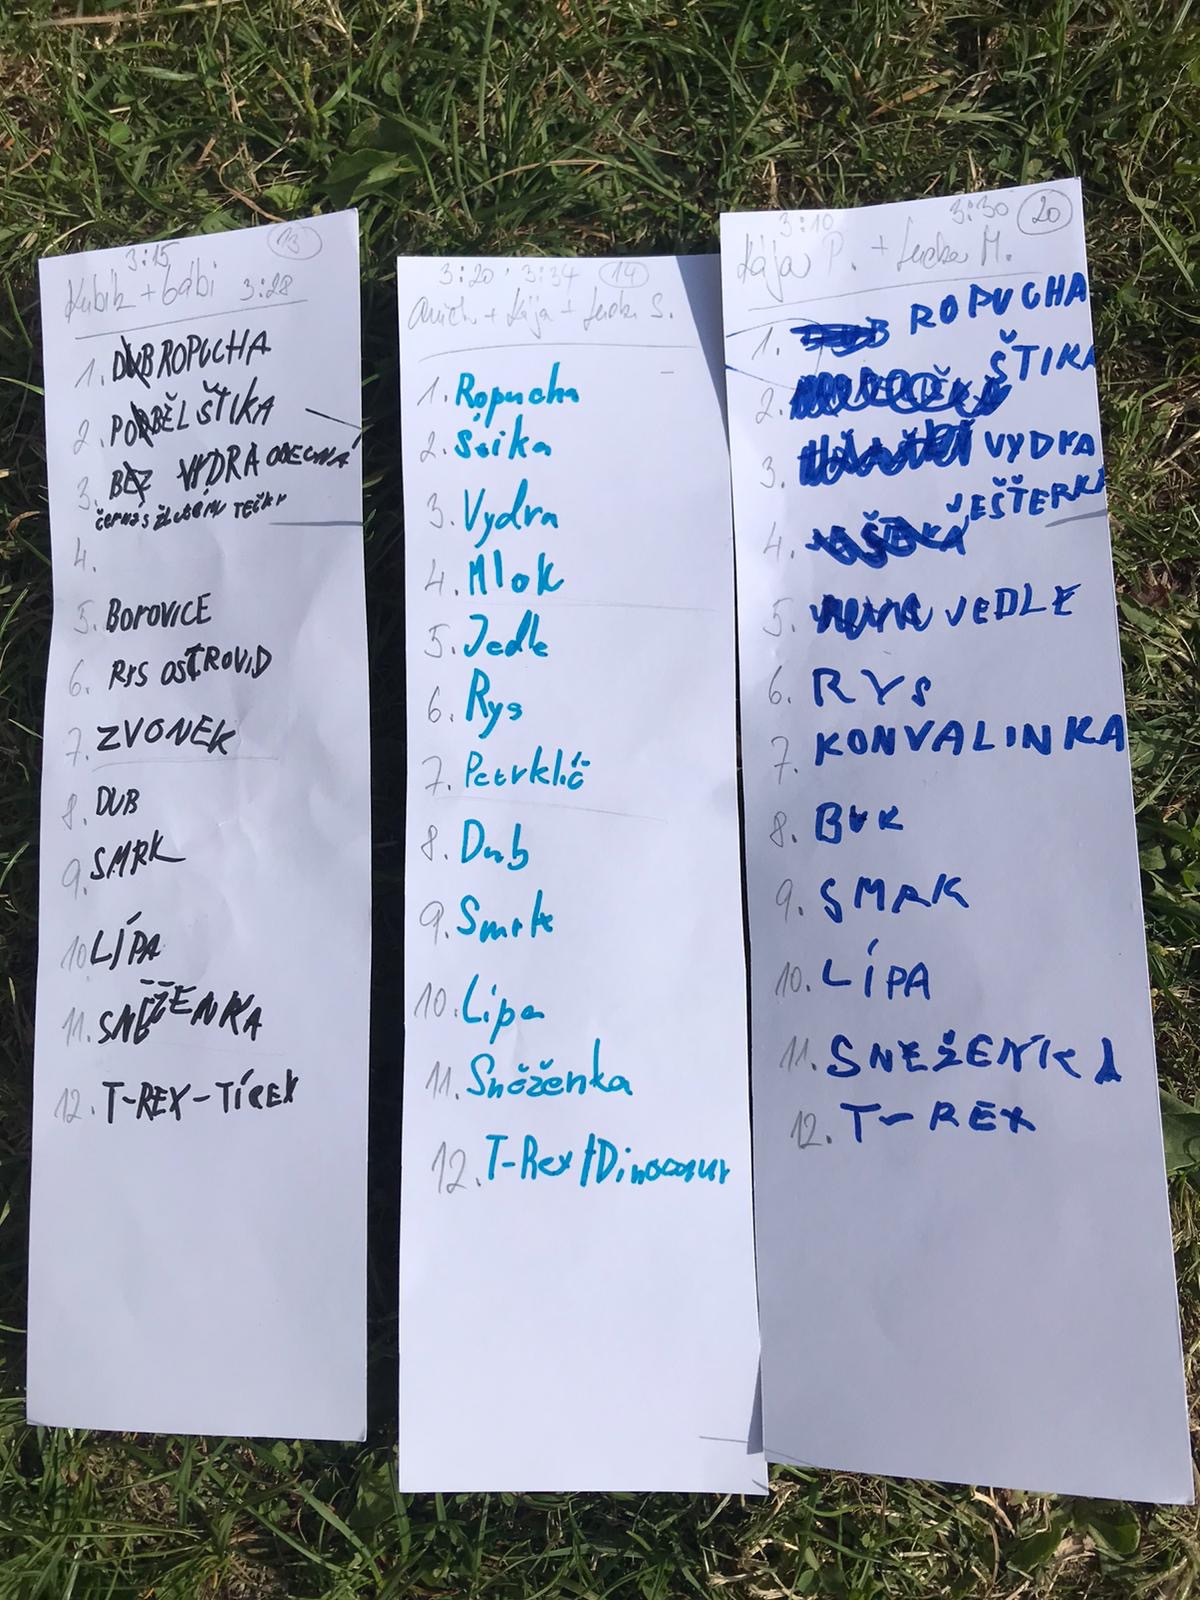 3:15 13
Kubík + babi 3:28
1. DUB ROPUCHA
2. ŠTIKA
3. BEZ VYDRA OBECNÁ
4.
5. BOROVICE
6. RYS OSTROVID
7. ZVONEK
8. DUB
9. SMRK
10. LÍPA
11. SNĚŽENKA
12. T-REX-TÍREX
3:20 3:34 14
+ Kája + S.
1. Ropucha
2. Štika
3. Vydra
4. Mlok
5. Jedle
6. Rys
7. Petrklíč
8. Dub
9. Smrk
10. Lípa
11. Sněženka
12. T-Rex/Dinosaur
3:10 3:30 20
Kája P. + M.
1. ROPUCHA
2. ŠTIKA
3. VYDRA
4. JEŠTĚRKA
5. JEDLE
6. RYS
7. KONVALINKA
8. BUK
9. SMRK
10. LÍPA
11. SNEŽENKA
12. T-REX